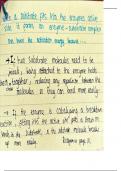 When a substrate fits into the enzymes active
site it forms an enzyme - substrate complex
This lowers the activation energy because...
→ If two substrate molecules need to be
joined, being attached to the enzyme holds
them together, reducing any repulsion between the
molecules so they can bond more easily.
→ If the enzyme is catalysing a breakdown
reaction, fitting into the active site puts a strain on
bonds in the substrate, so the substrate molecule breaks
up more easily.